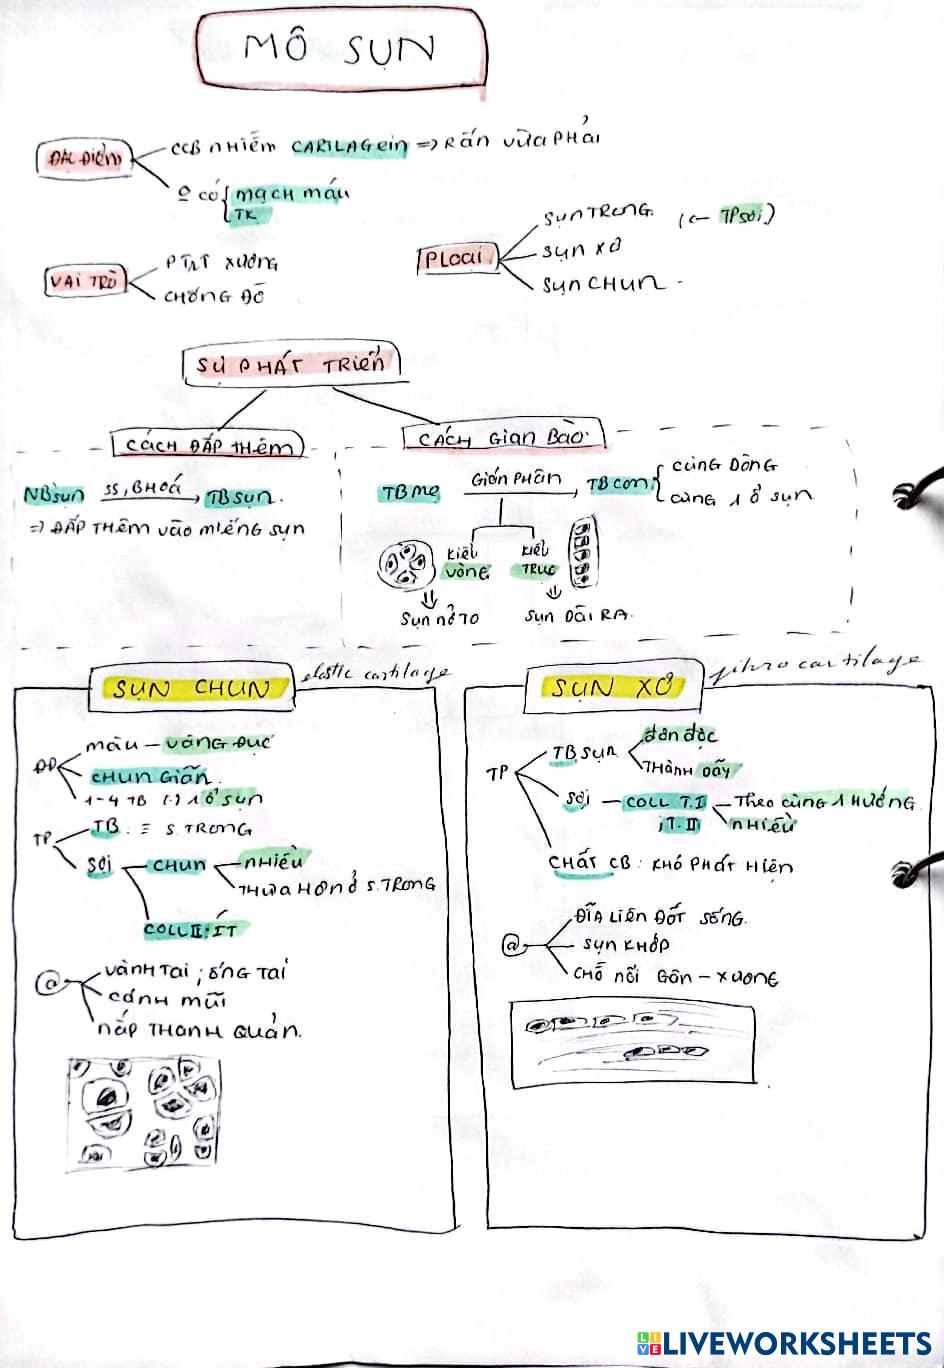 MÔ SỤN
ĐẶC ĐIỂM
CCB NHIỄM CARTILAGEIN => RẮN VỪA PHẢI
O CÓ { MẠCH MÁU
TK
VAI TRÒ
PTrT XƯƠNG
CHỐNG ĐỠ
PLOẠI
SỤN TRONG (<- TP SỢI)
SỤN XƠ
SỤN CHUN.
SỰ PHÁT TRIỂN
CÁCH ĐẮP THÊM
NB SỤN SS, BHOÁ → TB SỤN.
=> ĐẮP THÊM VÀO MIẾNG SỤN
CÁCH GIAN BÀO.
TB MẸ GIÁN PHÂN → TB CON { CÙNG DÒNG
CÙNG 1 Ổ SỤN
KIỂU VÒNG
KIỂU TRỤC
SỤN NỞ TO
SỤN DÀI RA.
SỤN CHUN elastic cartilage
ĐĐ
MÀU - VÀNG ĐỤC
CHUN GIÃN.
1-4 TB (-) 1 Ổ SỤN
TP
TB : ≡ S. TRONG
SỢI - CHUN
NHIỀU
THƯA HƠN Ở S. TRONG
COLL II: ÍT
@
VÀNH TAI ; ỐNG TAI
CÁNH MŨI
NẮP THANH QUẢN.
SỤN XƠ fibro cartilage
TP
TB SỤN
ĐƠN ĐỘC
THÀNH DÃY
SỢI - COLL T.I ; T.II
THEO CÙNG 1 HƯỚNG
NHIỀU
CHẤT CB: KHÓ PHÁT HIỆN
@
ĐĨA LIÊN ĐỐT SỐNG.
SỤN KHỚP
CHỖ NỐI GÂN - XƯƠNG
LIVEWORKSHEETS